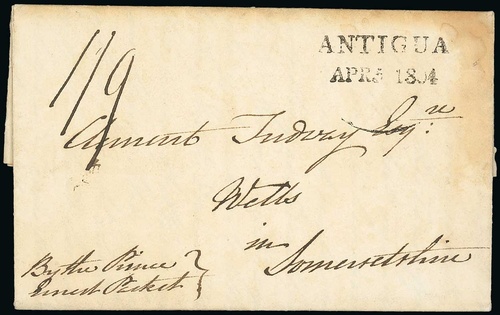 ANTIGUA
APR 5 1804
1/9
Clement Tudway Esqre:
Wells
in
Somersetshire
By the Prince
Ernest Packet